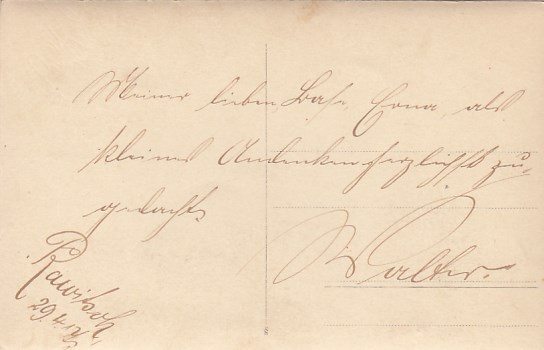 Meiner lieben Base Erna, als
kleines Andenken herzlichst zu-
gedacht.
Walter.
Rawitsch,
29.4.